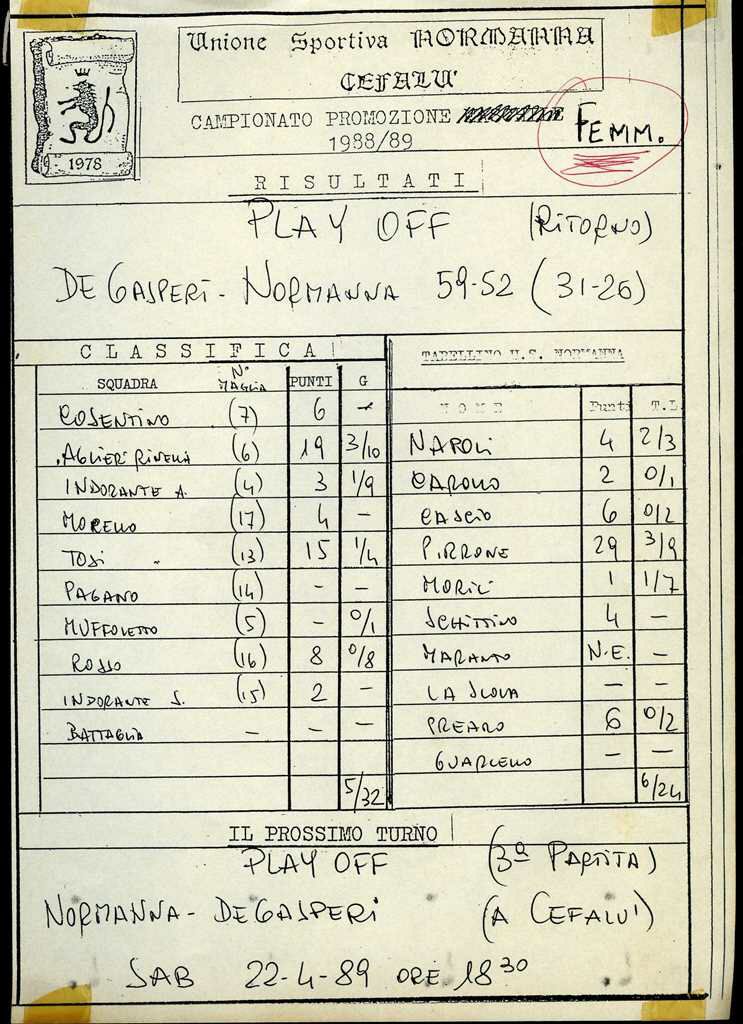 Unione Sportiva NORMANNA
CEFALU'
CAMPIONATO PROMOZIONE
FEMM.
1988/89
1978
RISULTATI
PLAY OFF (RITORNO)
DE GASPERI - NORMANNA 59-52 (31-26)
CLASSIFICA
SQUADRA N° MAGLIA PUNTI G
COSENTINO (7) 6 -
AGLIERI RINELLA (6) 19 3/10
INDORANTE A. (4) 3 1/9
MORELLO (17) 4 -
TOSI (13) 15 1/4
PAGANO (14) - -
MUFFOLETTO (5) - 0/1
ROSSO (16) 8 0/8
INDORANTE S. (15) 2 -
BATTAGLIA - - -
5/32
TABELLINO U.S. NORMANNA
NOME Punti T.L.
NAPOLI 4 2/3
CAROLLO 2 0/1
CASCIO 6 0/2
PIRRONE 29 3/9
MORICI 1 1/7
SCHITTINO 4 -
MARANTO N.E. -
LA SCOLA - -
PREARO 6 0/2
GUARCELLO - -
6/24
IL PROSSIMO TURNO
PLAY OFF (3ª PARTITA)
NORMANNA - DE GASPERI (A CEFALU')
SAB 22-4-89 ORE 18 30